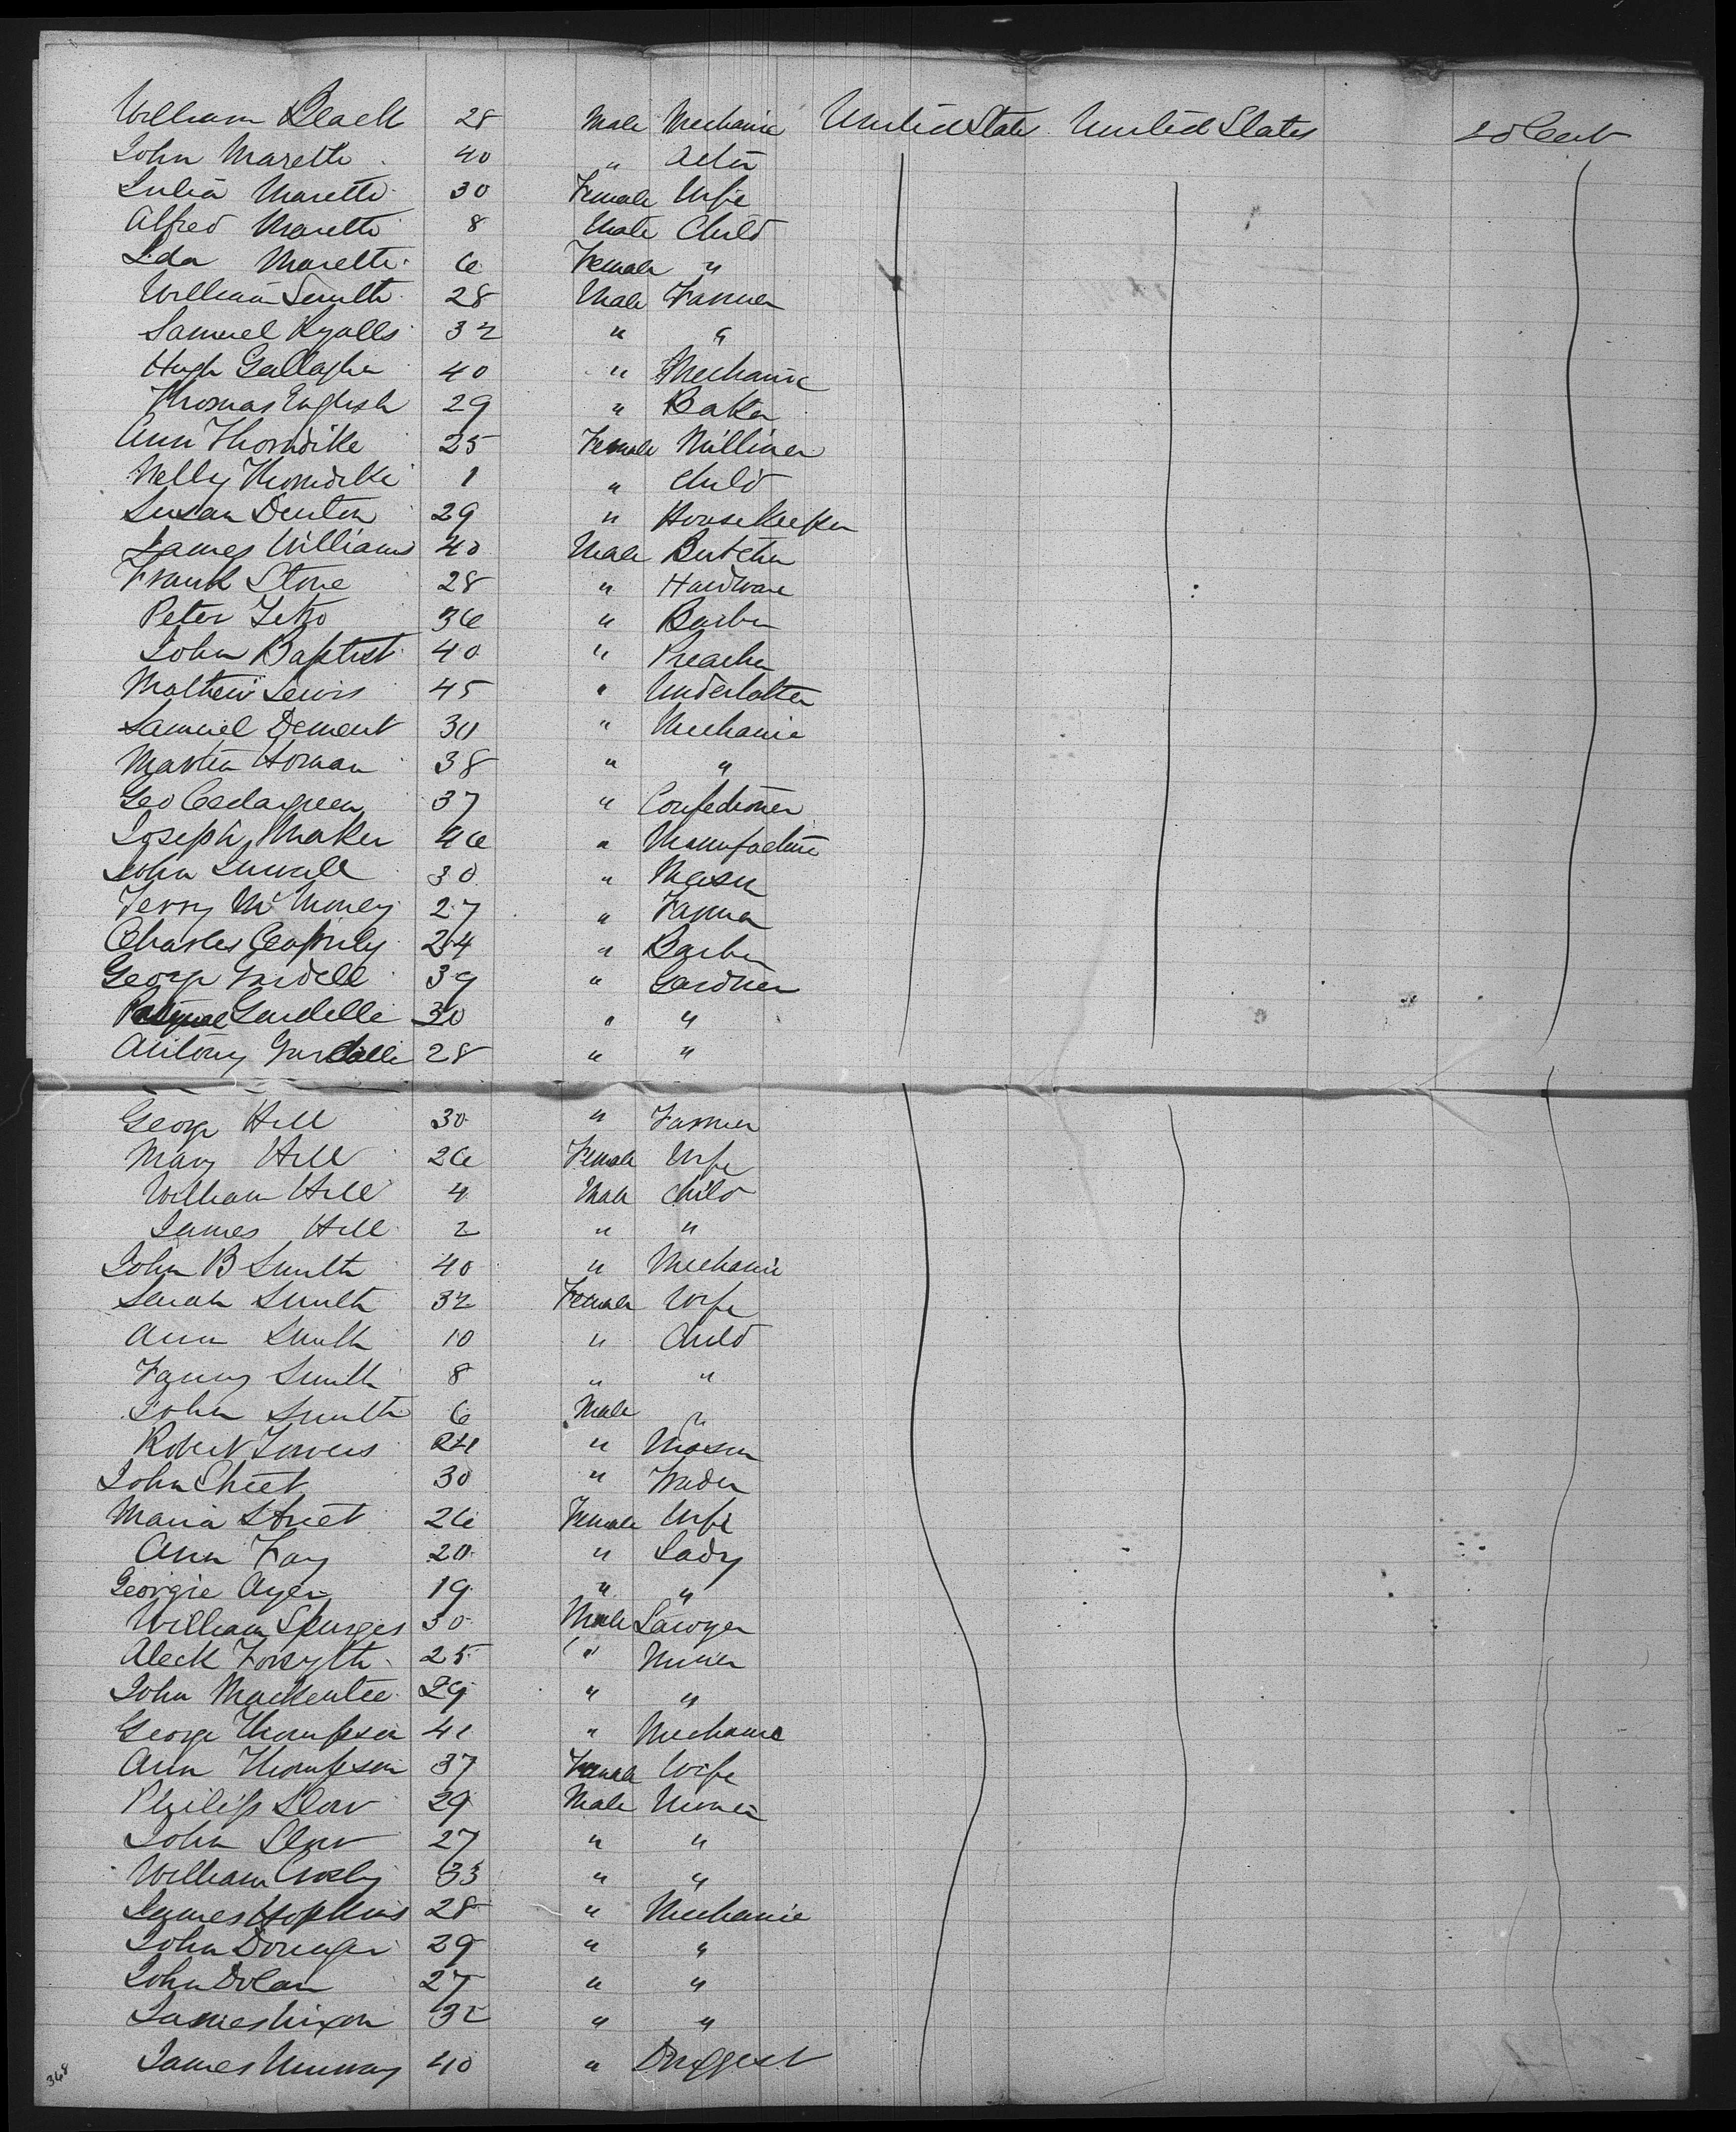 William Black 28 Male Mechanic United States United States 2d Cab
John Marette 40 " Actor
Julia Marette 30 Female Wife
Alfred Marette 8 Male Child
Ida Marette 6 Female "
William Smith 28 Male Farmer
Samuel Ryalls 32 " "
Hugh Gallagher 40 " Mechanic
Thomas English 29 " Baker
Ann Thorndike 25 Female Milliner
Nelly Thorndike 1 " Child
Susan Denton 29 " Housekeeper
James Williams 40 Male Butcher
Frank Stone 28 " Hardware
Peter 36 " Barber
John Baptist 40 " Preacher
Mathew Lewis 45 " Undertaker
Samuel Dement 30 " Mechanic
Martin Homan 38 " "
Geo Cedargreen 37 " Confectioner
Joseph Maker 46 " Manufacture
John 30 " Mason
Terry McMoney 27 " Farmer
Charles 24 " Barber
George Gardell 39 " Gardner
Gardelle 30 " "
Antony Gardelle 28 " "
George Hill 30 " Farmer
Mary Hill 26 Female Wife
William Hill 4 Male Child
James Hill 2 " "
John B Smith 40 " Mechanic
Sarah Smith 32 Female Wife
Ann Smith 10 " Child
Fanny Smith 8 " "
John Smith 6 Male "
Robert Towers 24 " Mason
John Street 30 " Trader
Maria Street 26 Female Wife
Ann Fay 20 " Lady
Georgie Ayer 19 " "
William Spurges 30 Male Lawyer
Aleck Forsyth 25 " Miner
John Mackentee 29 " "
George Thompson 41 " Mechanic
Ann Thompson 37 Female Wife
Philip Slow 29 Male Miner
John Slow 27 " "
William Crosby 33 " "
James Hopkins 28 " Mechanic
John 29 " "
John Dolan 27 " "
James Nixon 32 " "
James Murray 40 " Druggist
348